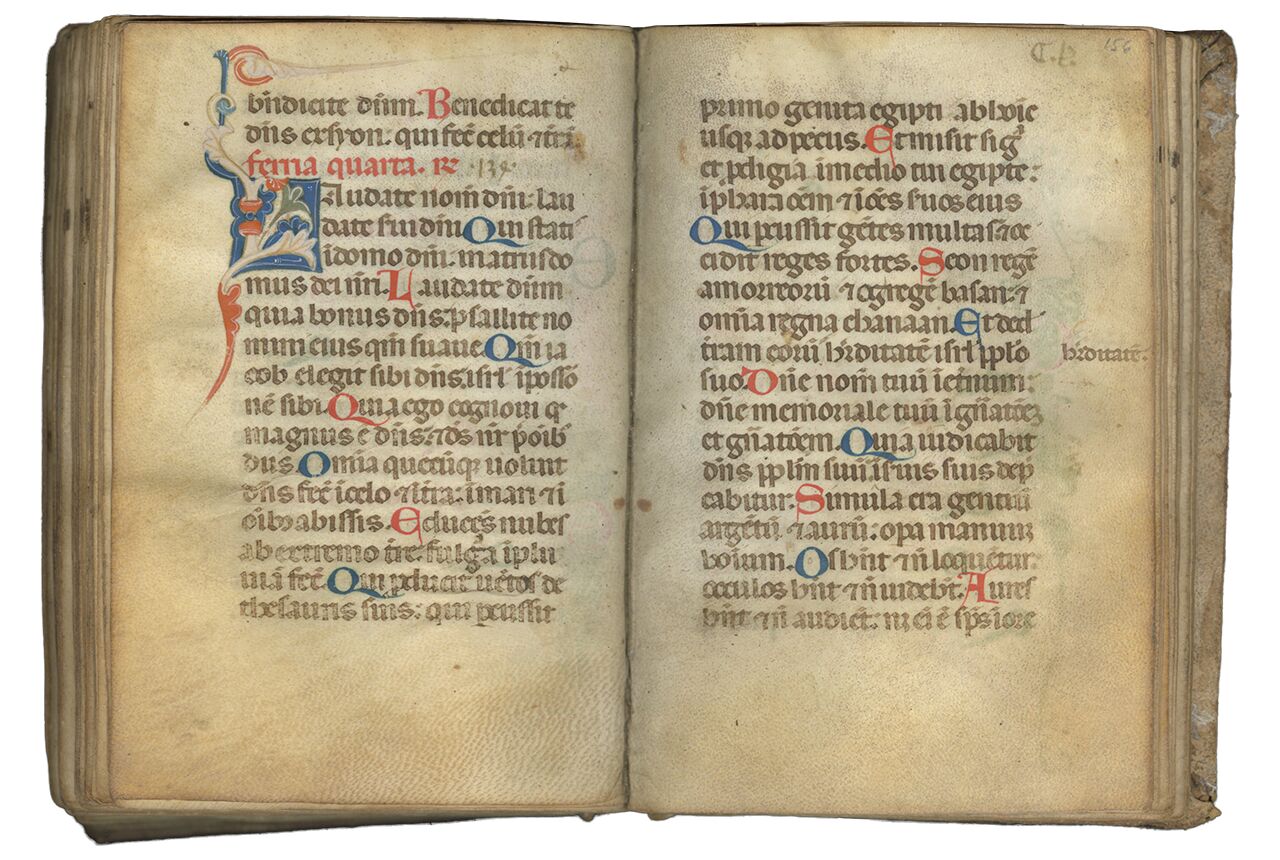 bñdicite dñm. Benedicat te
dñs ex syon: qui fec̃ celũ ⁊ tr̃a.
feria quarta. ꝶ 134
Laudate nom̃ dñi: lau
date s̃ui dñm Qui stati
i domo dñi: in atriis do
mus dei nr̃i. Laudate dñm
quia bonus dñs: psallite no
mini eius qm̃ suaue. Qm̃ ia
cob elegit sibi dñs: isrl̃ ĩ posso
nẽ sibi. Quia ego cognoui q
magnus ẽ dñs: ⁊ ds̃ nr̃ p̃ oĩb
dus. Omĩa quecũq; uoluit
dñs fec̃ ĩ celo ⁊ ĩ tr̃a: ĩ mari ⁊ ĩ
oĩb abissis. Educẽs nubes
ab extremo tr̃e: fulg̃a ĩ plu
uiã fec̃. Qui pducit uẽtos de
thesauris suis: qui pcussit
C. 4. 156
primo genita egipti ab hoĩe
usq; ad pecus. Et misit sig̃
et pdigia ĩ medio tui egipte:
ĩ pharaõem ⁊ ĩ oẽs suos eius
Qui pcussit gẽtes multas: ⁊ oc
cidit reges fortes. Seon regẽ
amorreorũ ⁊ og regẽ basan: ⁊
omĩa regna chanaan. Et ded̃
tr̃am eorũ hr̃ditatẽ isrl̃ pplo
hr̃ditatẽ.
suo. Dñe nom̃ tuũ ĩ etnum:
dñe memoriale tuũ ĩ gñatõez
et gñatõem. Quia iudicabit
dñs pplm̃ suũ: ĩ s̃uis suis dep̃
cabitur. Simulacra gentiũ
argẽtũ ⁊ aurũ: opa manuum
hoĩum. Os hñt ⁊ ñ loquẽtur:
oculos hñt ⁊ ñ uidebt̃. Aures
hñt ⁊ ñ audiẽt: ẽ ĩ ore